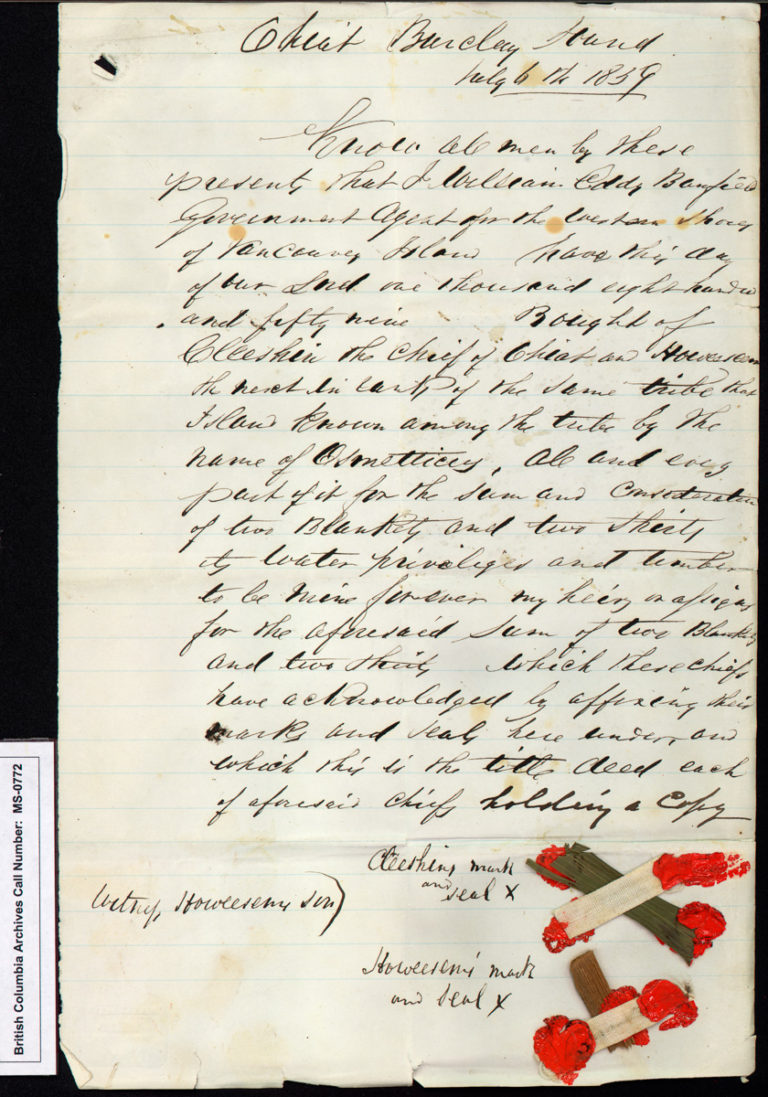 Ohiat Barclay Sound
July 6 th 1859
Know all men by these
presents that I William Eddy Banfield
Government Agent for the western shores
of Vancouver Island have this day
of our Lord one thousand eight hundred
and fifty nine Bought of
Cleeshin the chief of Ohiat and Howeesem
the next in rank of the same tribe that
Island known among the tribe by the
name of Osmetticey, all and every
part of it for the sum and consideration
of two Blankets and two shirts
its water privileges and timber
to be mine forever my heirs or assigns
for the aforesaid sum of two Blankets
and two shirts which these chiefs
have acknowledged by affixing their
marks and seals here under, and
which this is the title deed each
of aforesaid chiefs holding a copy
Cleeshins mark
and seal X
Witness Howeesems son)
Howeesems mark
and seal X
British Columbia Archives Call Number: MS-0772